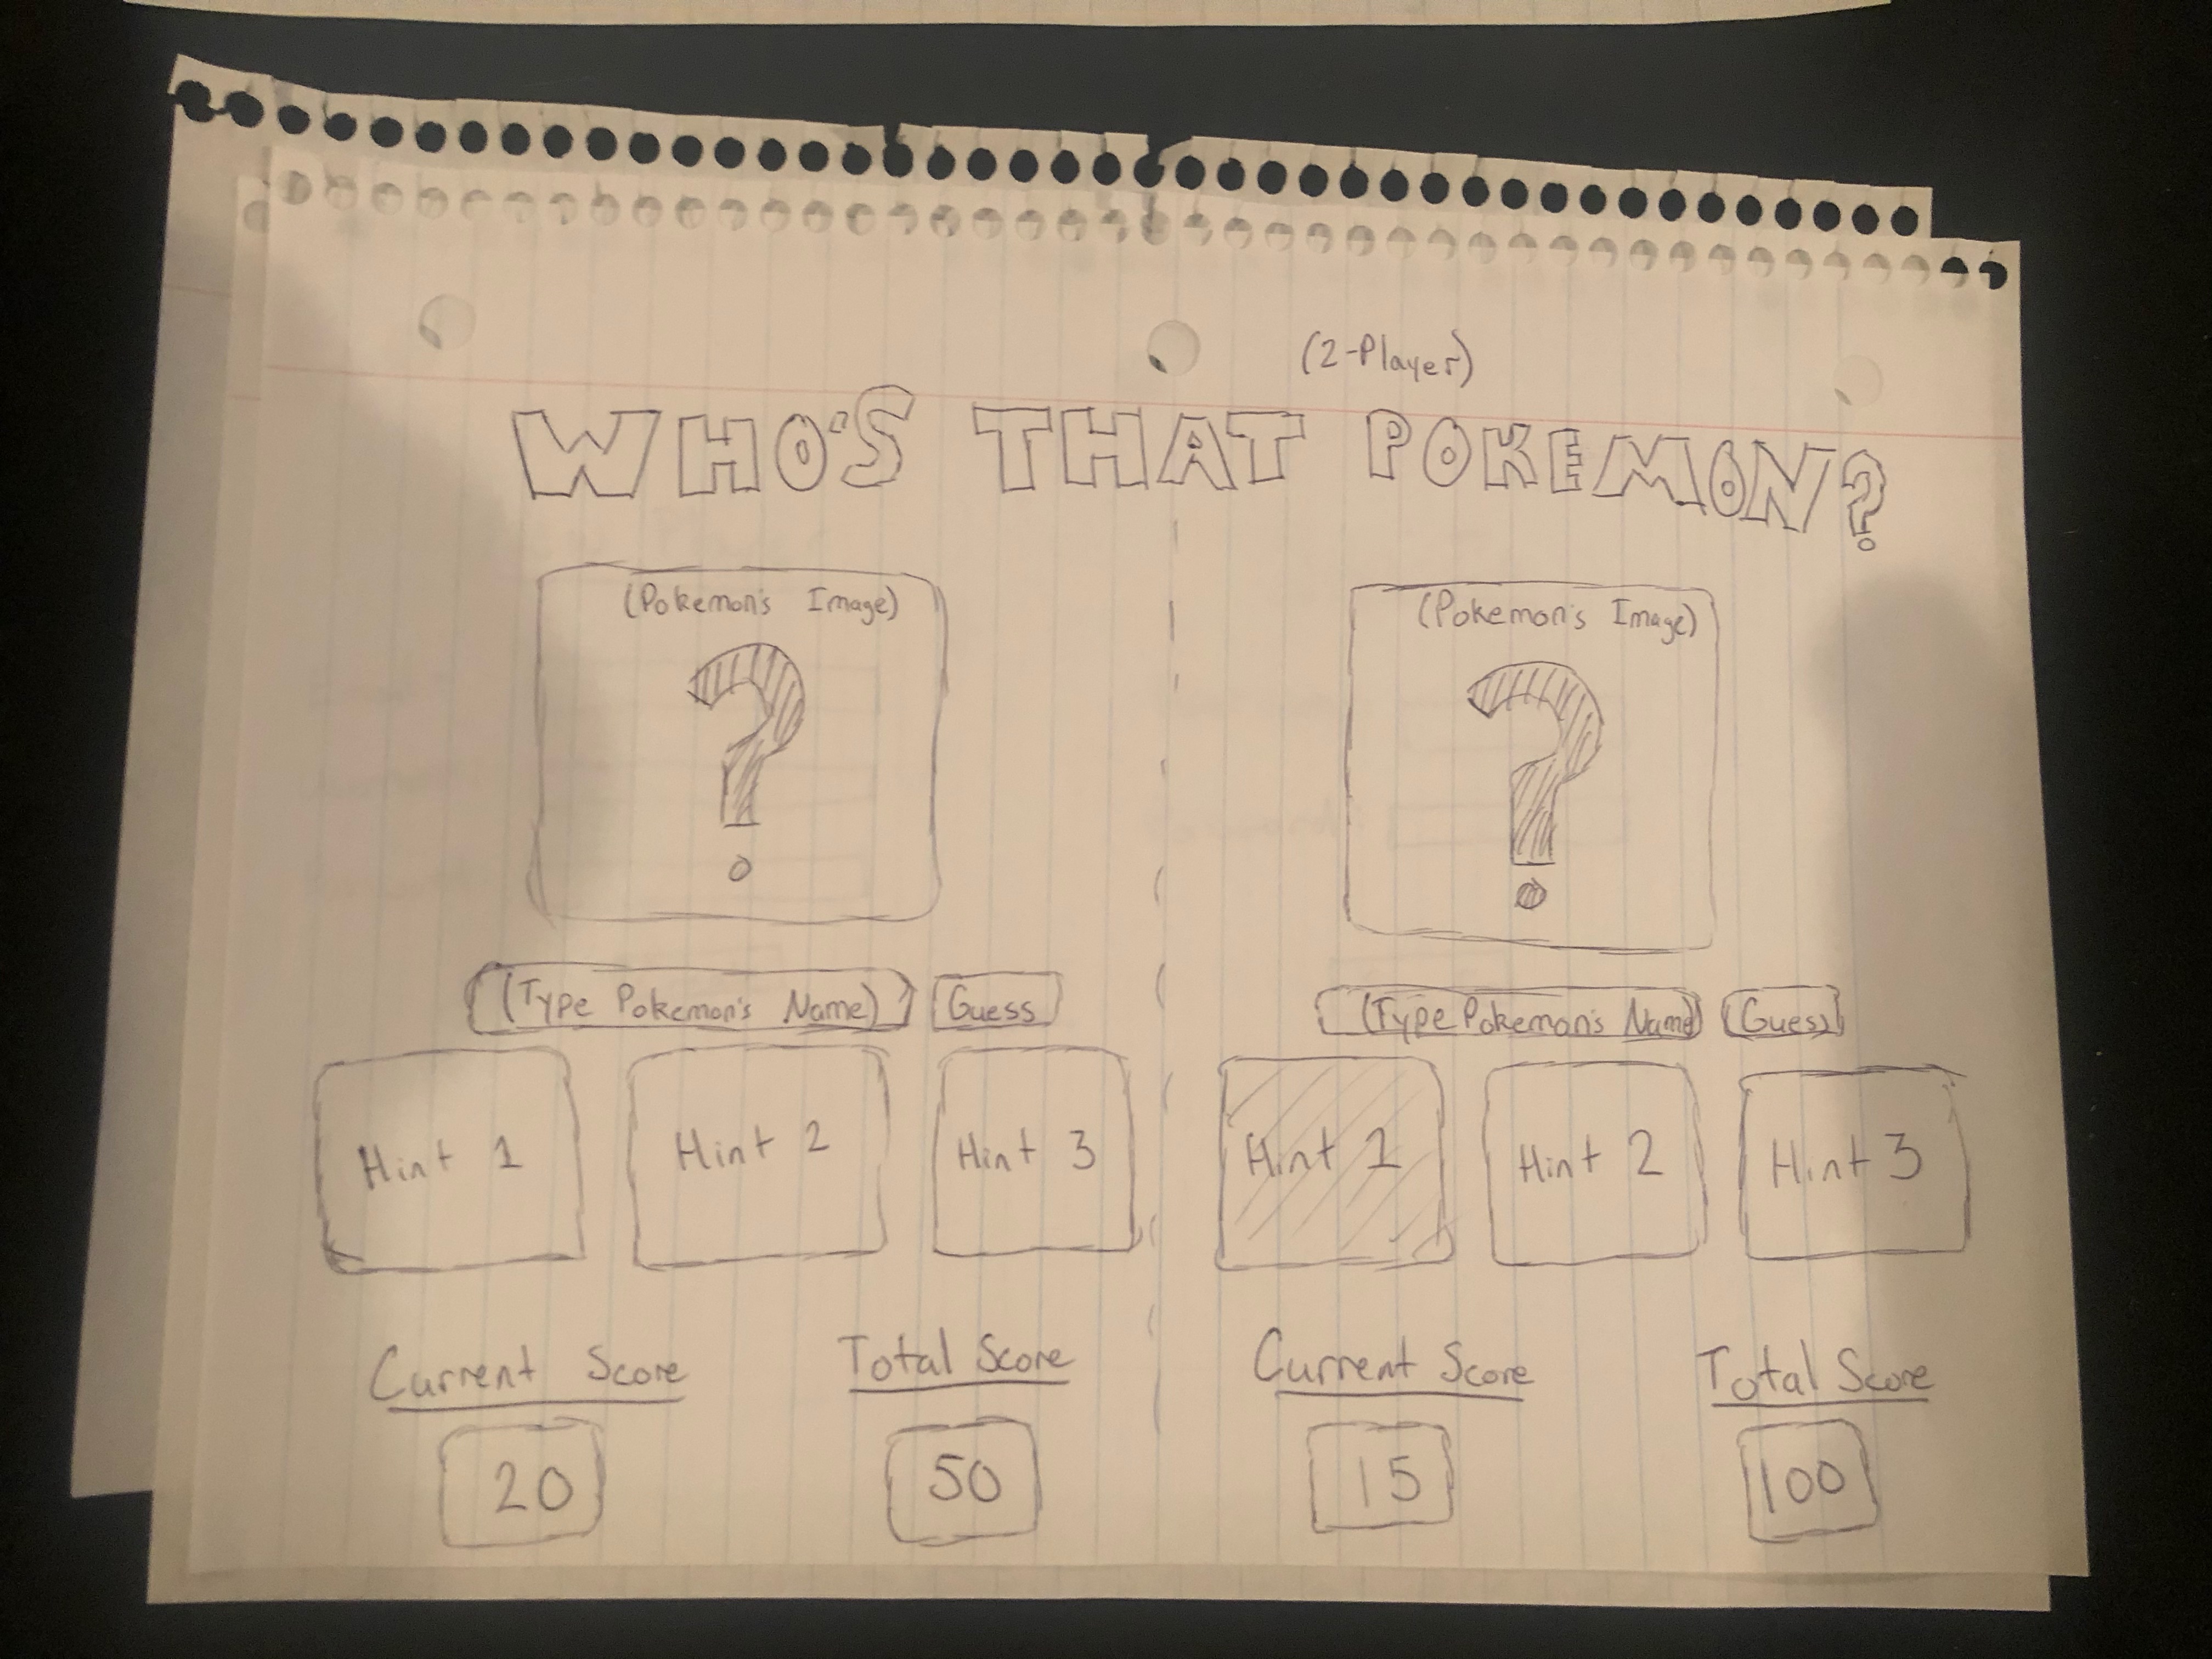 (2-Player)
WHO'S THAT POKEMON?
(Pokemon's Image)
?
(Type Pokemon's Name) Guess
Hint 1 Hint 2 Hint 3
Current Score Total Score
20 50
(Pokemon's Image)
?
(Type Pokemon's Name) Guess
Hint 1 Hint 2 Hint 3
Current Score Total Score
15 100